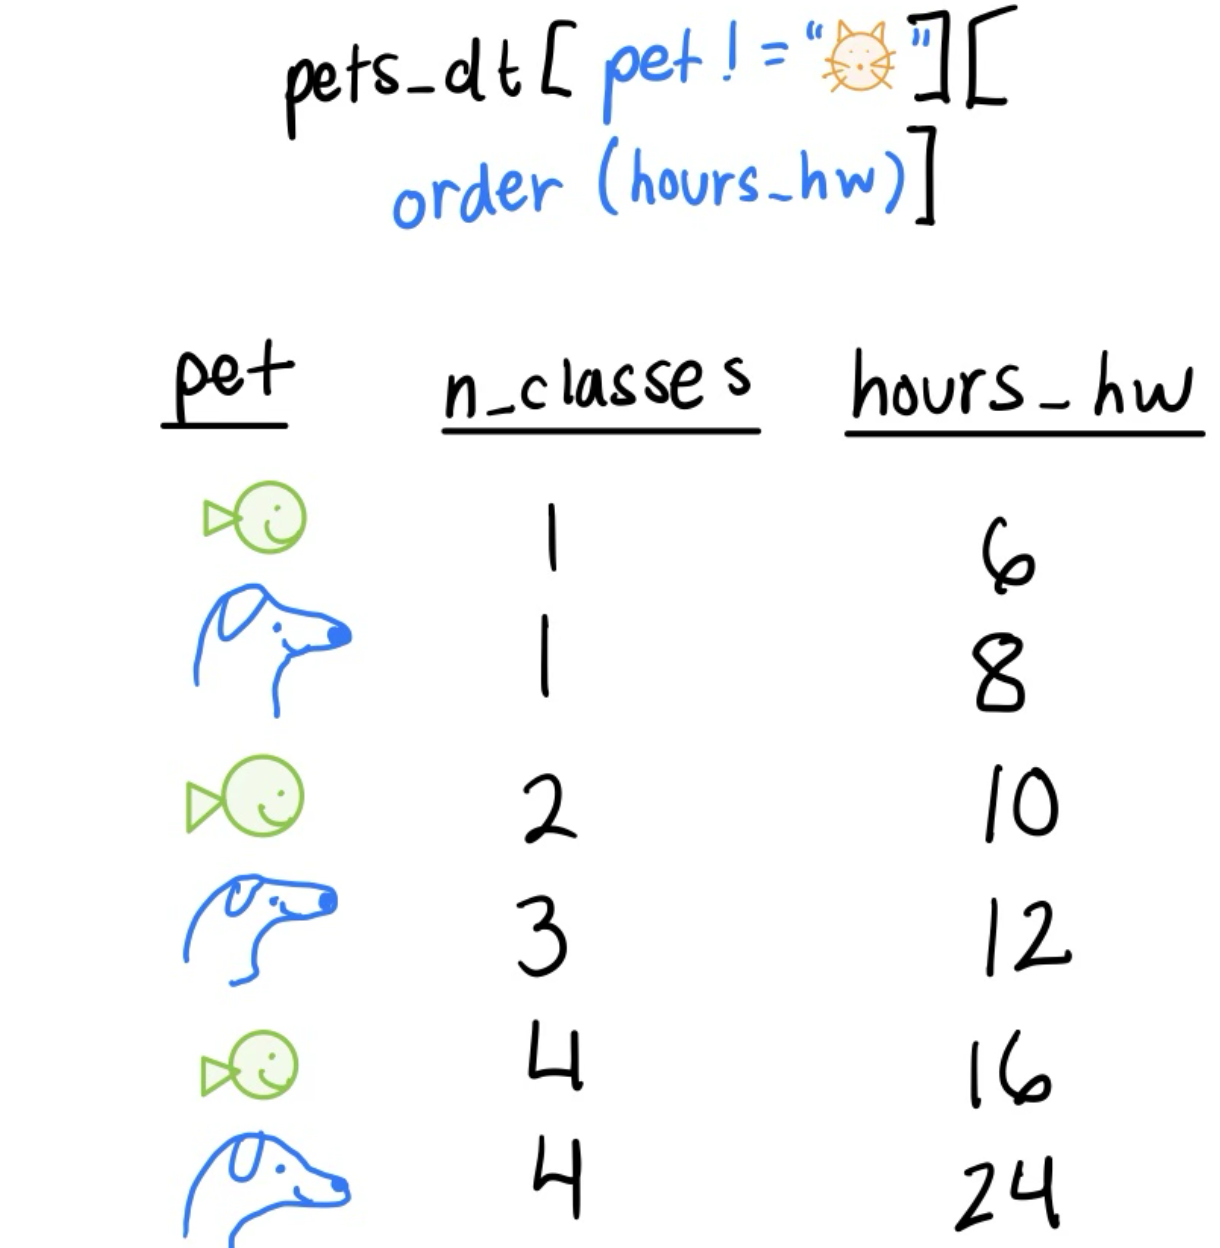 pets_dt[pet != "🐱"][
order (hours_hw)]
pet n_classes hours_hw
1 6
1 8
2 10
3 12
4 16
4 24